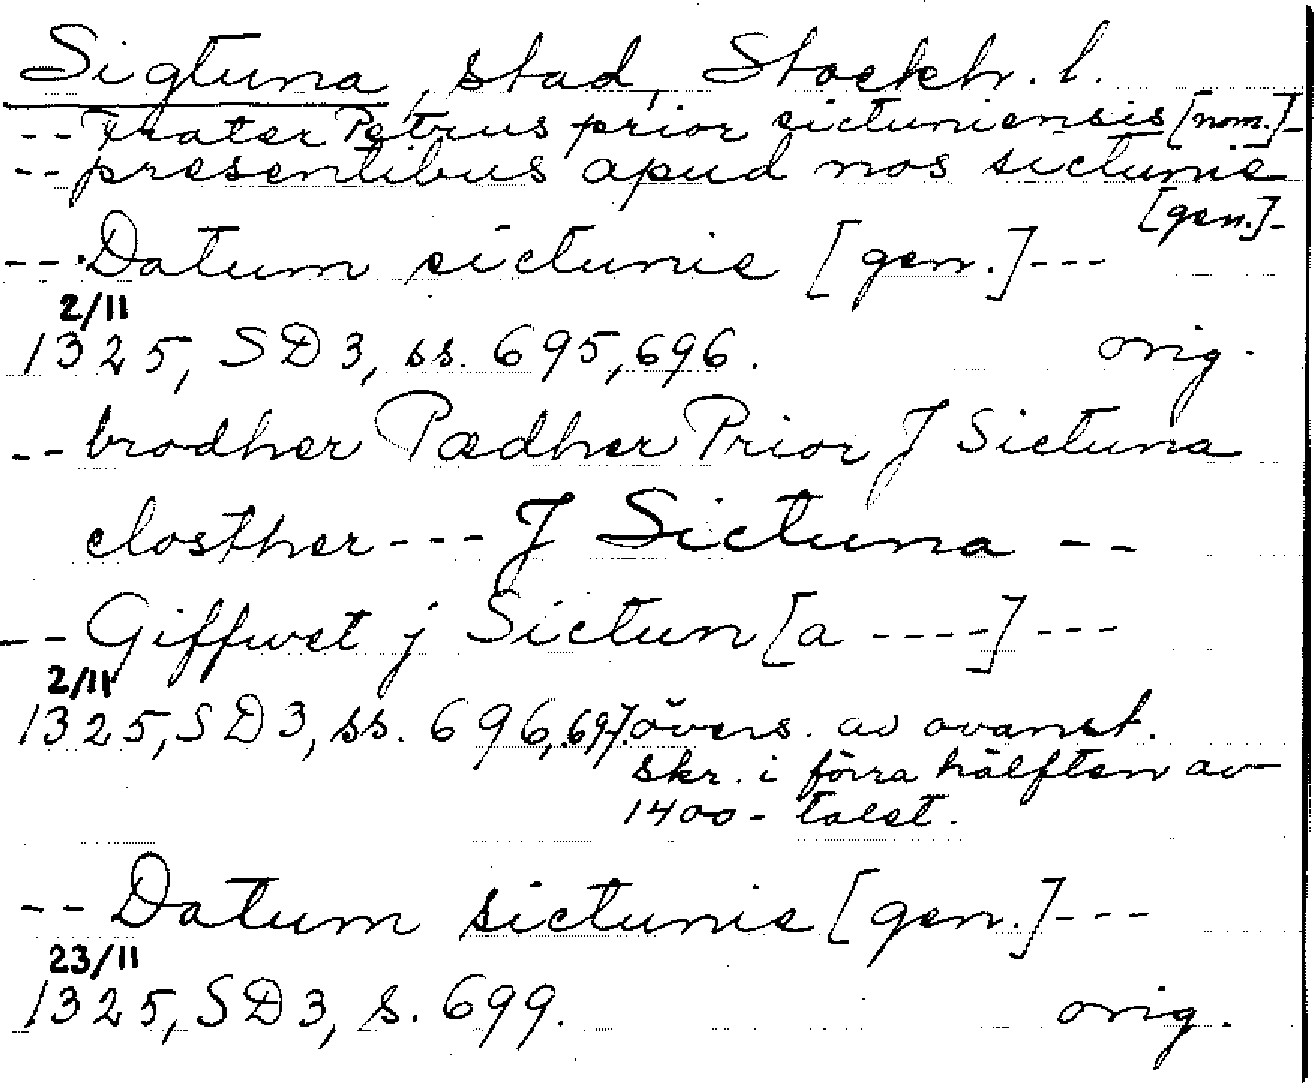 Sigtuna, stad, Stockh. l.
-- Frater Petrus prior sictuniensis [nom.]-
-- presentibus apud nos sictunie
[gen.]-
--. Datum sictunie [gen.]---
2/11
1325, SD 3, ss. 695, 696. orig.
-- brodher Pædher Prior J Sictuna
closther --- J Sictuna --
-- Giffwet j Sictun[a ----]---
2/11
1325, SD 3, ss. 696, 697. övers. av ovanst.
skr. i förra hälften av
1400-talet.
-- Datum sictunie [gen.]---
23/11
1325, SD 3, s. 699. orig.